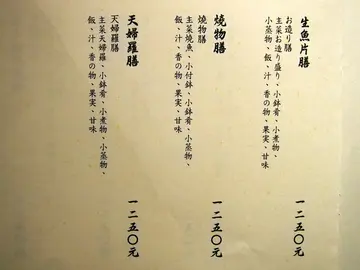 生魚片膳
お造り膳
主菜お造り盛り、小鉢肴、小煮物、
小蒸物、飯、汁、香の物、果実、甘味
一二五〇元
燒物膳
燒物膳
主菜燒魚、小付鉢、小鉢肴、小蒸物、
飯、汁、香の物、果実、甘味
一二五〇元
天婦羅膳
天婦羅膳
主菜天婦羅、小鉢肴、小煮物、小蒸物、
飯、汁、香の物、果実、甘味
一二五〇元